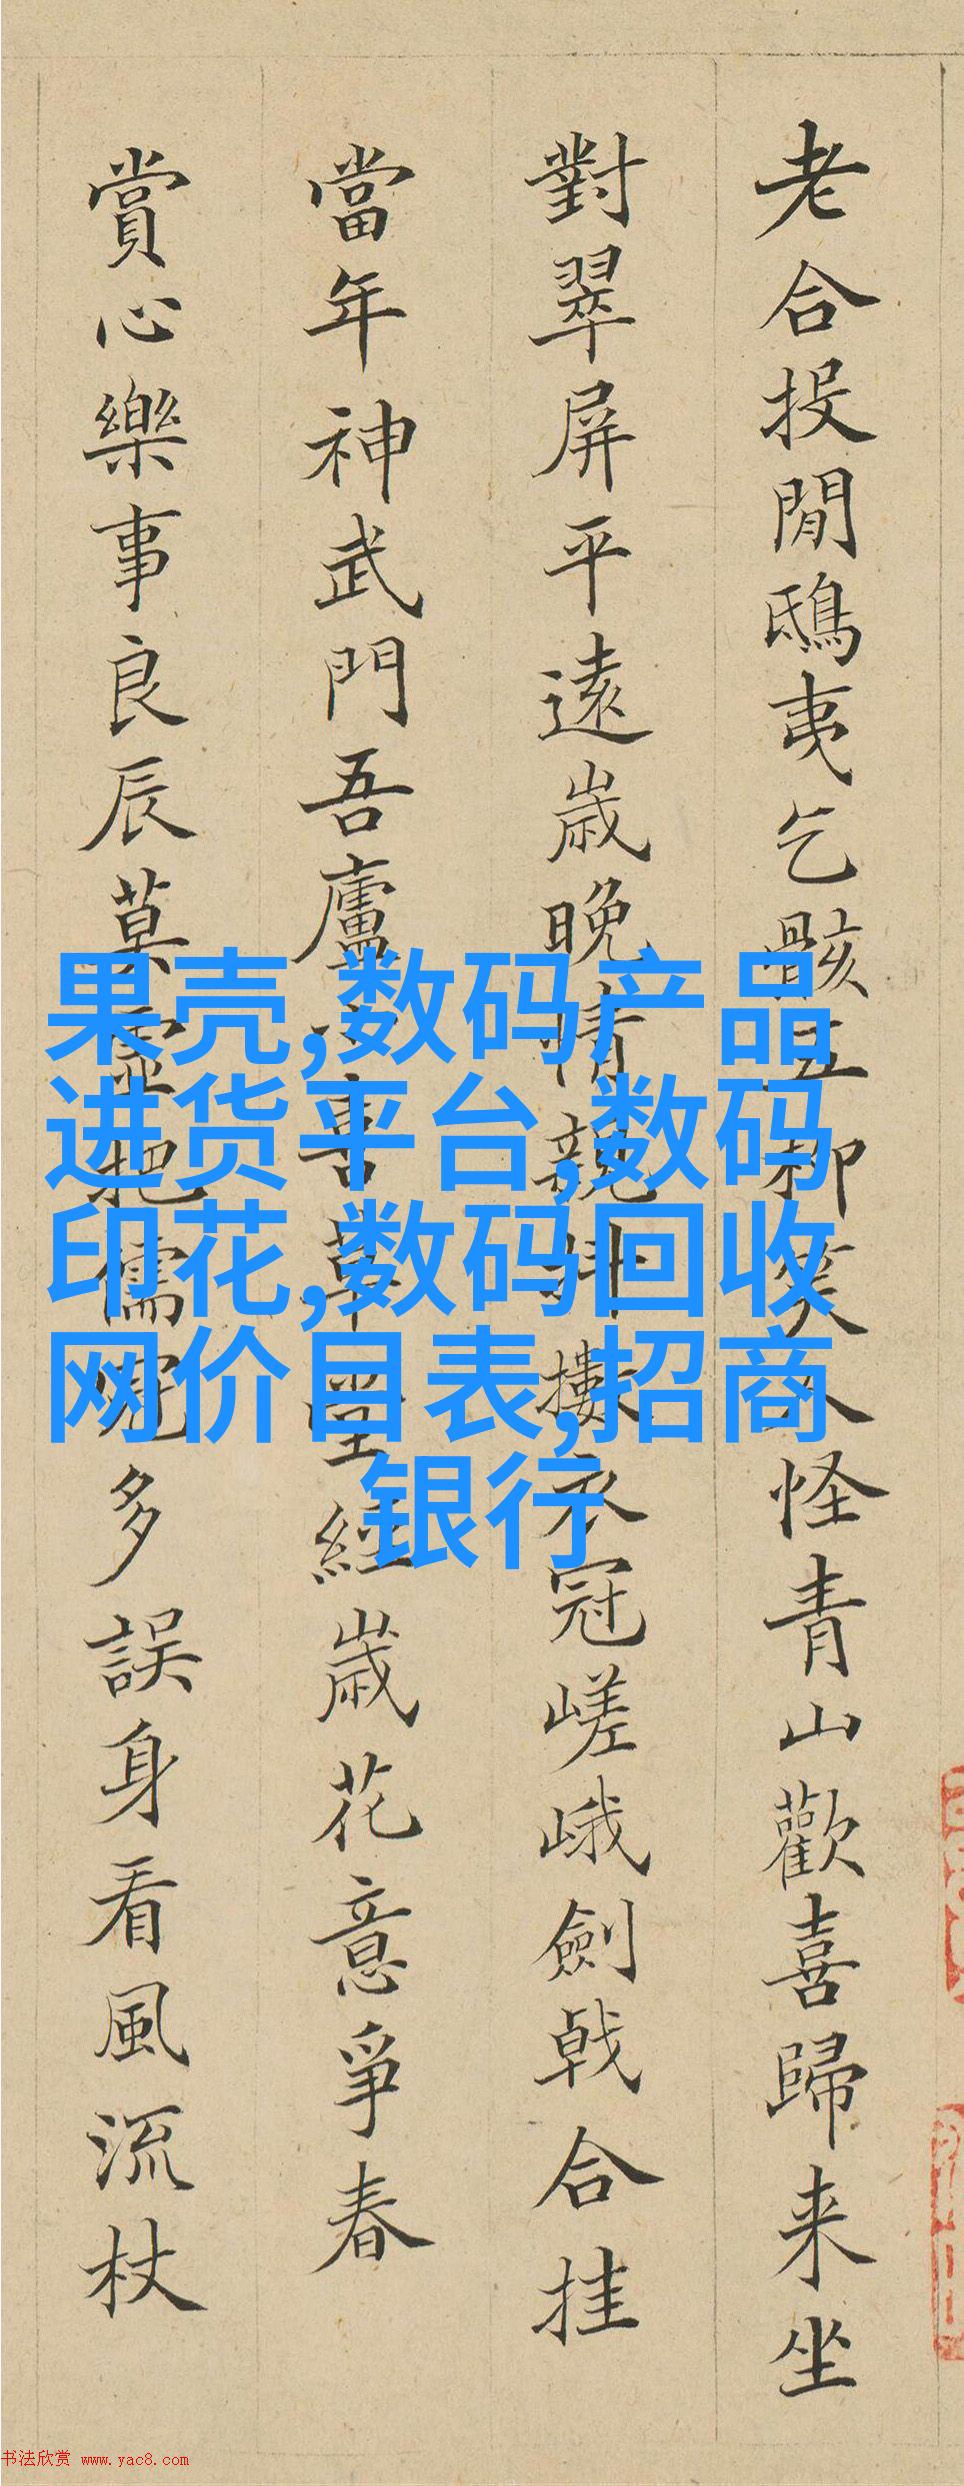 老合投閒鴟夷乞骸五柳笑人怪青山歡喜歸来坐
對翠屏平遠歲晚情親摟衣冠嵯峨劍戟合挂
當年神武門吾廬喜草堂經歲花意爭春
賞心樂事良辰莫把儒冠多誤身看風流杖
果壳,数码产品
进货平台,数码
印花,数码回收
网价目表,招商
银行
书法欣赏 www.yac8.com